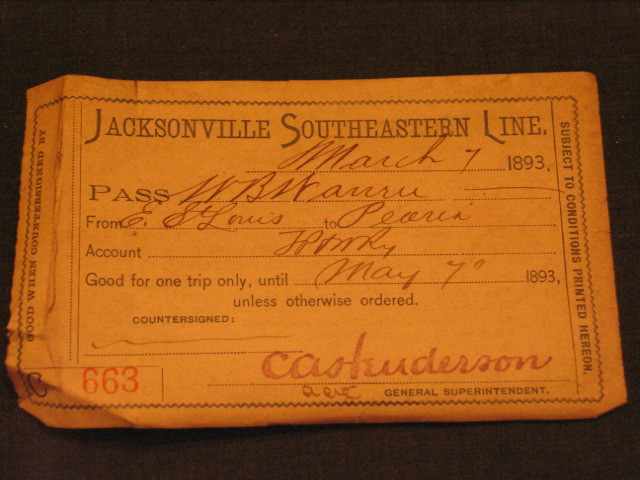 JACKSONVILLE SOUTHEASTERN LINE.
March 7 1893.
PASS W B
From E. St Louis to Peoria
Account
Good for one trip only, until May 7" 1893,
unless otherwise ordered.
COUNTERSIGNED:
GENERAL SUPERINTENDENT.
C 663
GOOD WHEN COUNTERSIGNED BY
SUBJECT TO CONDITIONS PRINTED HEREON.